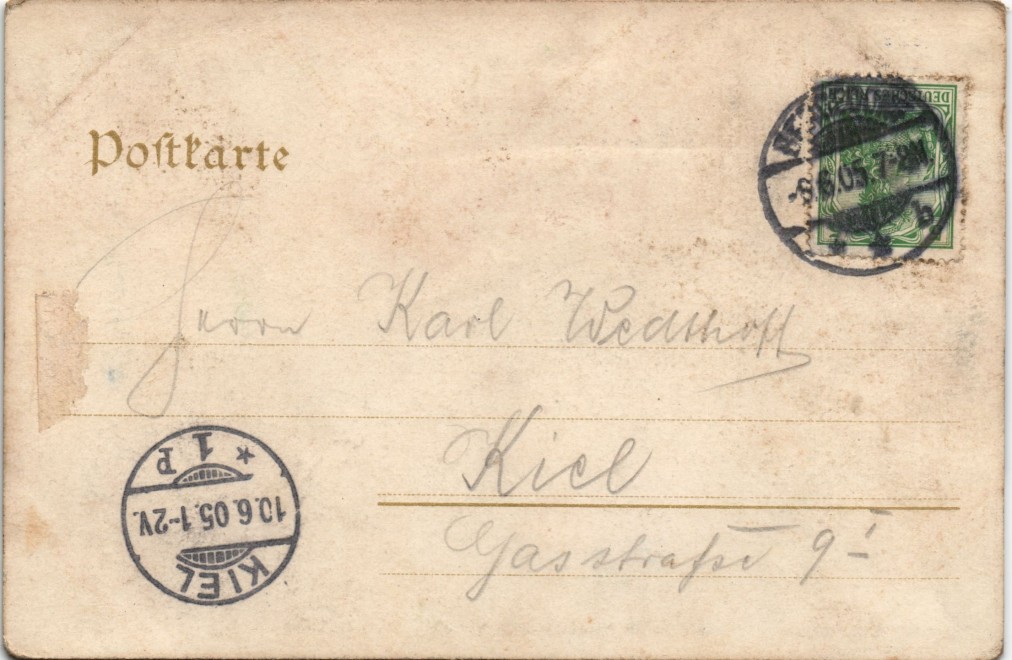 Postkarte
DEUTSCHES
6.05.7-8N.
b
Herrn Karl Wedthoff
Kiel
Gasstraße 9 I
KIEL
10.6.05.1-2V.
* 1 P